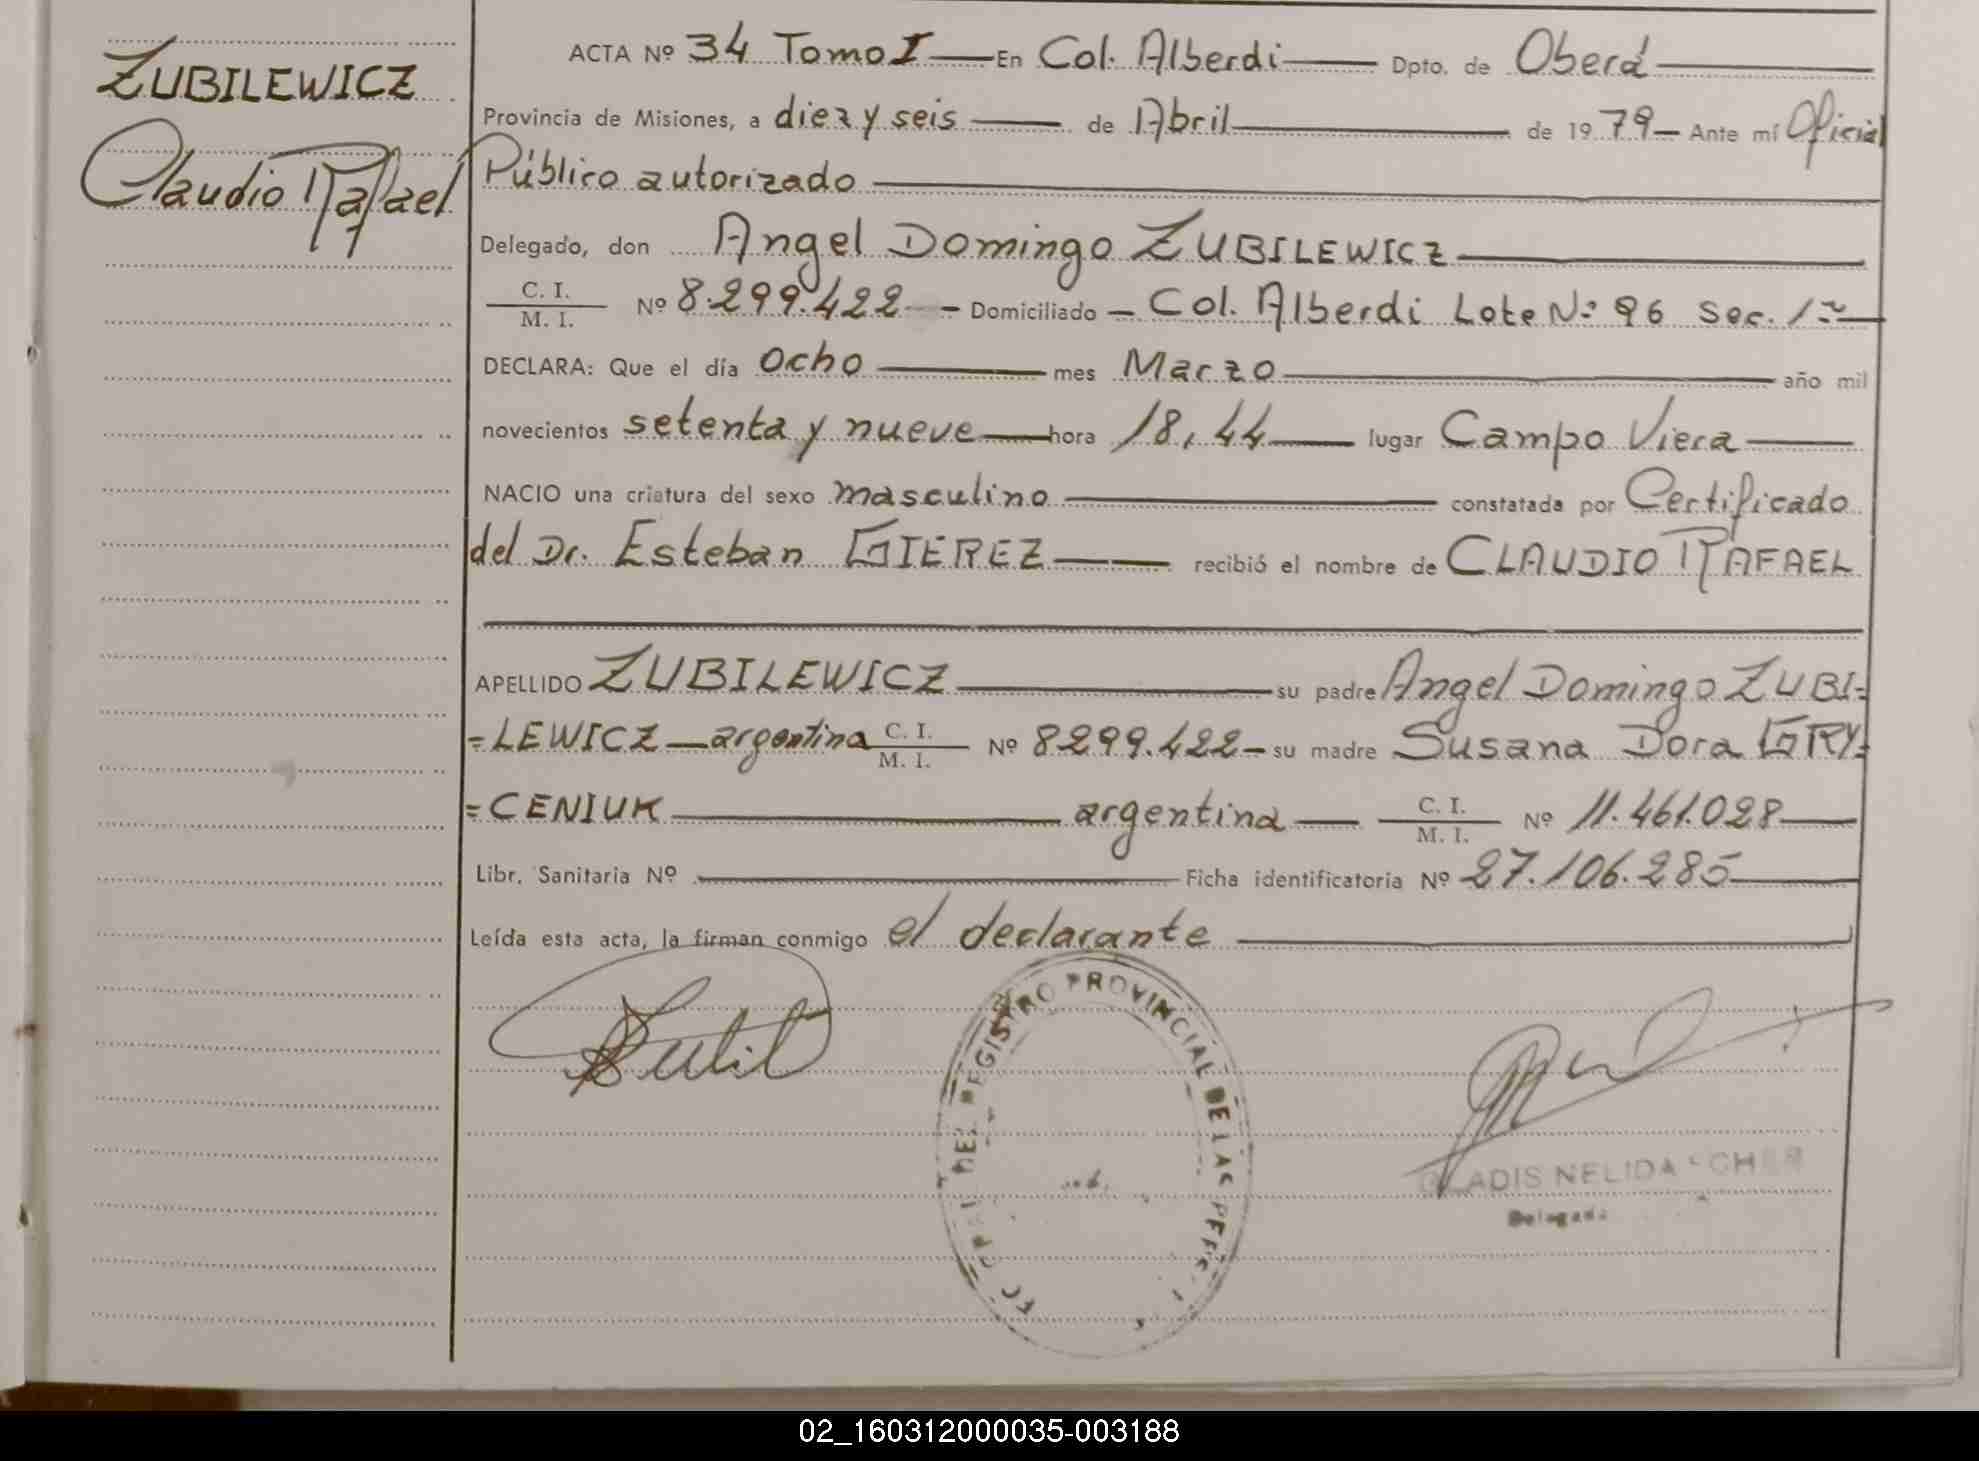 ZUBILEWICZ
Claudio Rafael
ACTA Nº 34 Tomo I En Col. Alberdi Dpto. de Oberá
Provincia de Misiones, a diez y seis de Abril de 1979 Ante mí Oficial
Público autorizado
Delegado, don Angel Domingo ZUBILEWICZ
C. I.
M. I. Nº 8.299.422 Domiciliado Col. Alberdi Lote Nº 96 Sec. 1ª
DECLARA: Que el día ocho mes Marzo año mil
novecientos setenta y nueve hora 18,44 lugar Campo Viera
NACIO una criatura del sexo masculino constatada por Certificado
del Dr. Esteban GIEREZ recibió el nombre de CLAUDIO RAFAEL
APELLIDO ZUBILEWICZ su padre Angel Domingo ZUBI=
=LEWICZ argentina C. I. M. I. Nº 8299.422 su madre Susana Dora GRY=
=CENIUK argentina C. I. M. I. Nº 11.461.028
Libr. Sanitaria Nº Ficha identificatoria Nº 27.106.285
Leída esta acta, la firman conmigo el declarante
DEL REGISTRO PROVINCIAL DE LAS
GLADIS NELIDA
Delegada
02_160312000035-003188